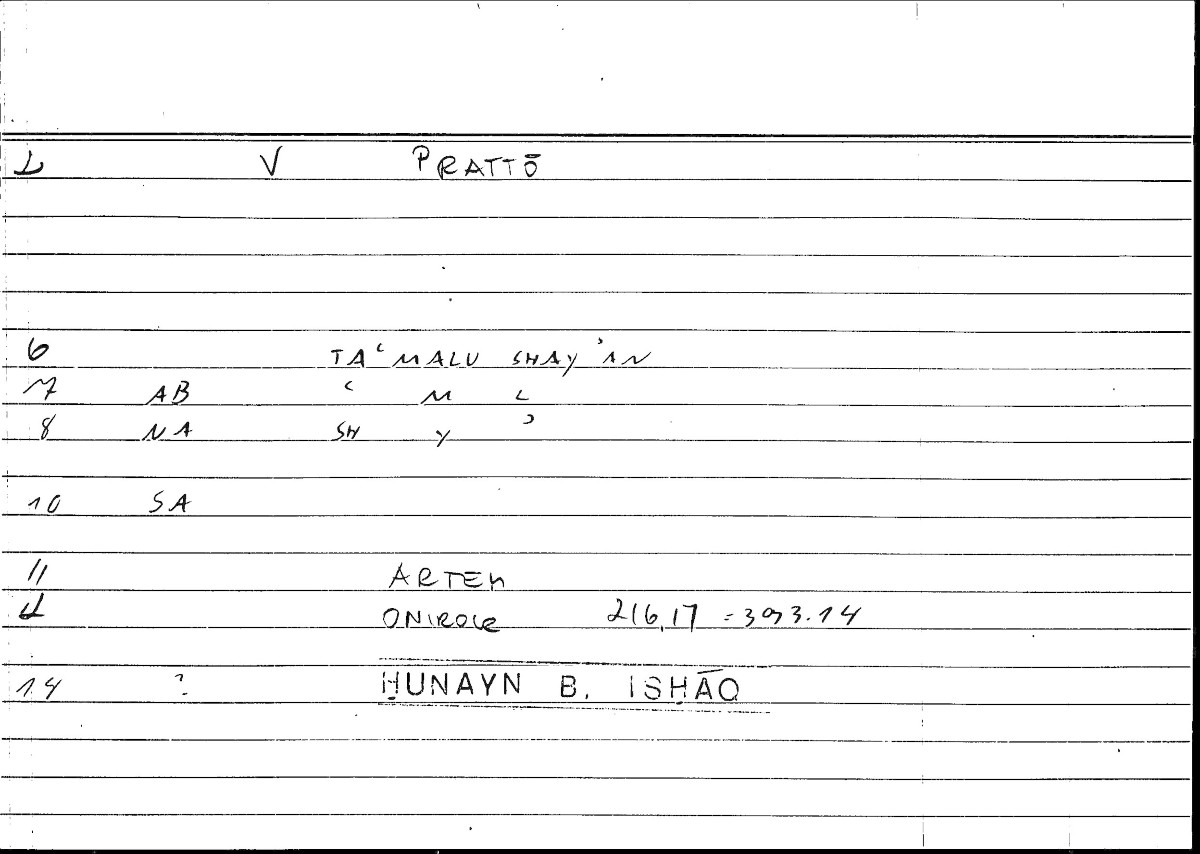 1 V PRATTŌ
6 TAʿMALU SHAYʾAN
7 AB ʿ M L
8 NA SH Y ʾ
10 SA
11 ARTEM
12 ONIROCR 216,17 = 393.14
14 ? ḤUNAYN B. ISḤĀQ